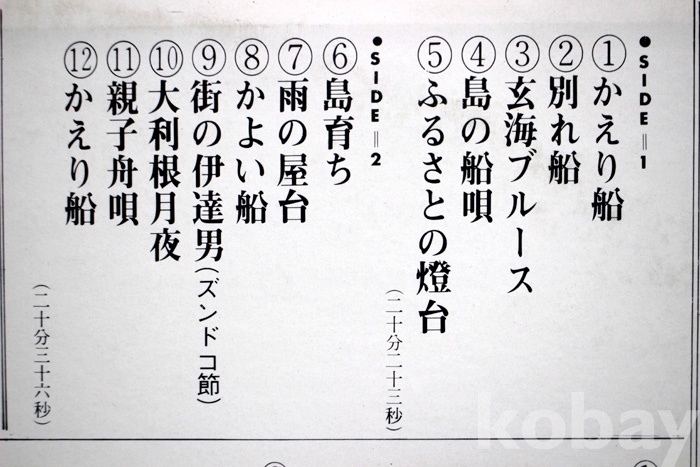 ●SIDE=1
①かえり船
②別れ船
③玄海ブルース
④島の船唄
⑤ふるさとの燈台
(二十分二十三秒)
●SIDE=2
⑥島育ち
⑦雨の屋台
⑧かよい船
⑨街の伊達男(ズンドコ節)
⑩大利根月夜
⑪親子舟唄
⑫かえり船
(二十分三十六秒)
kobay